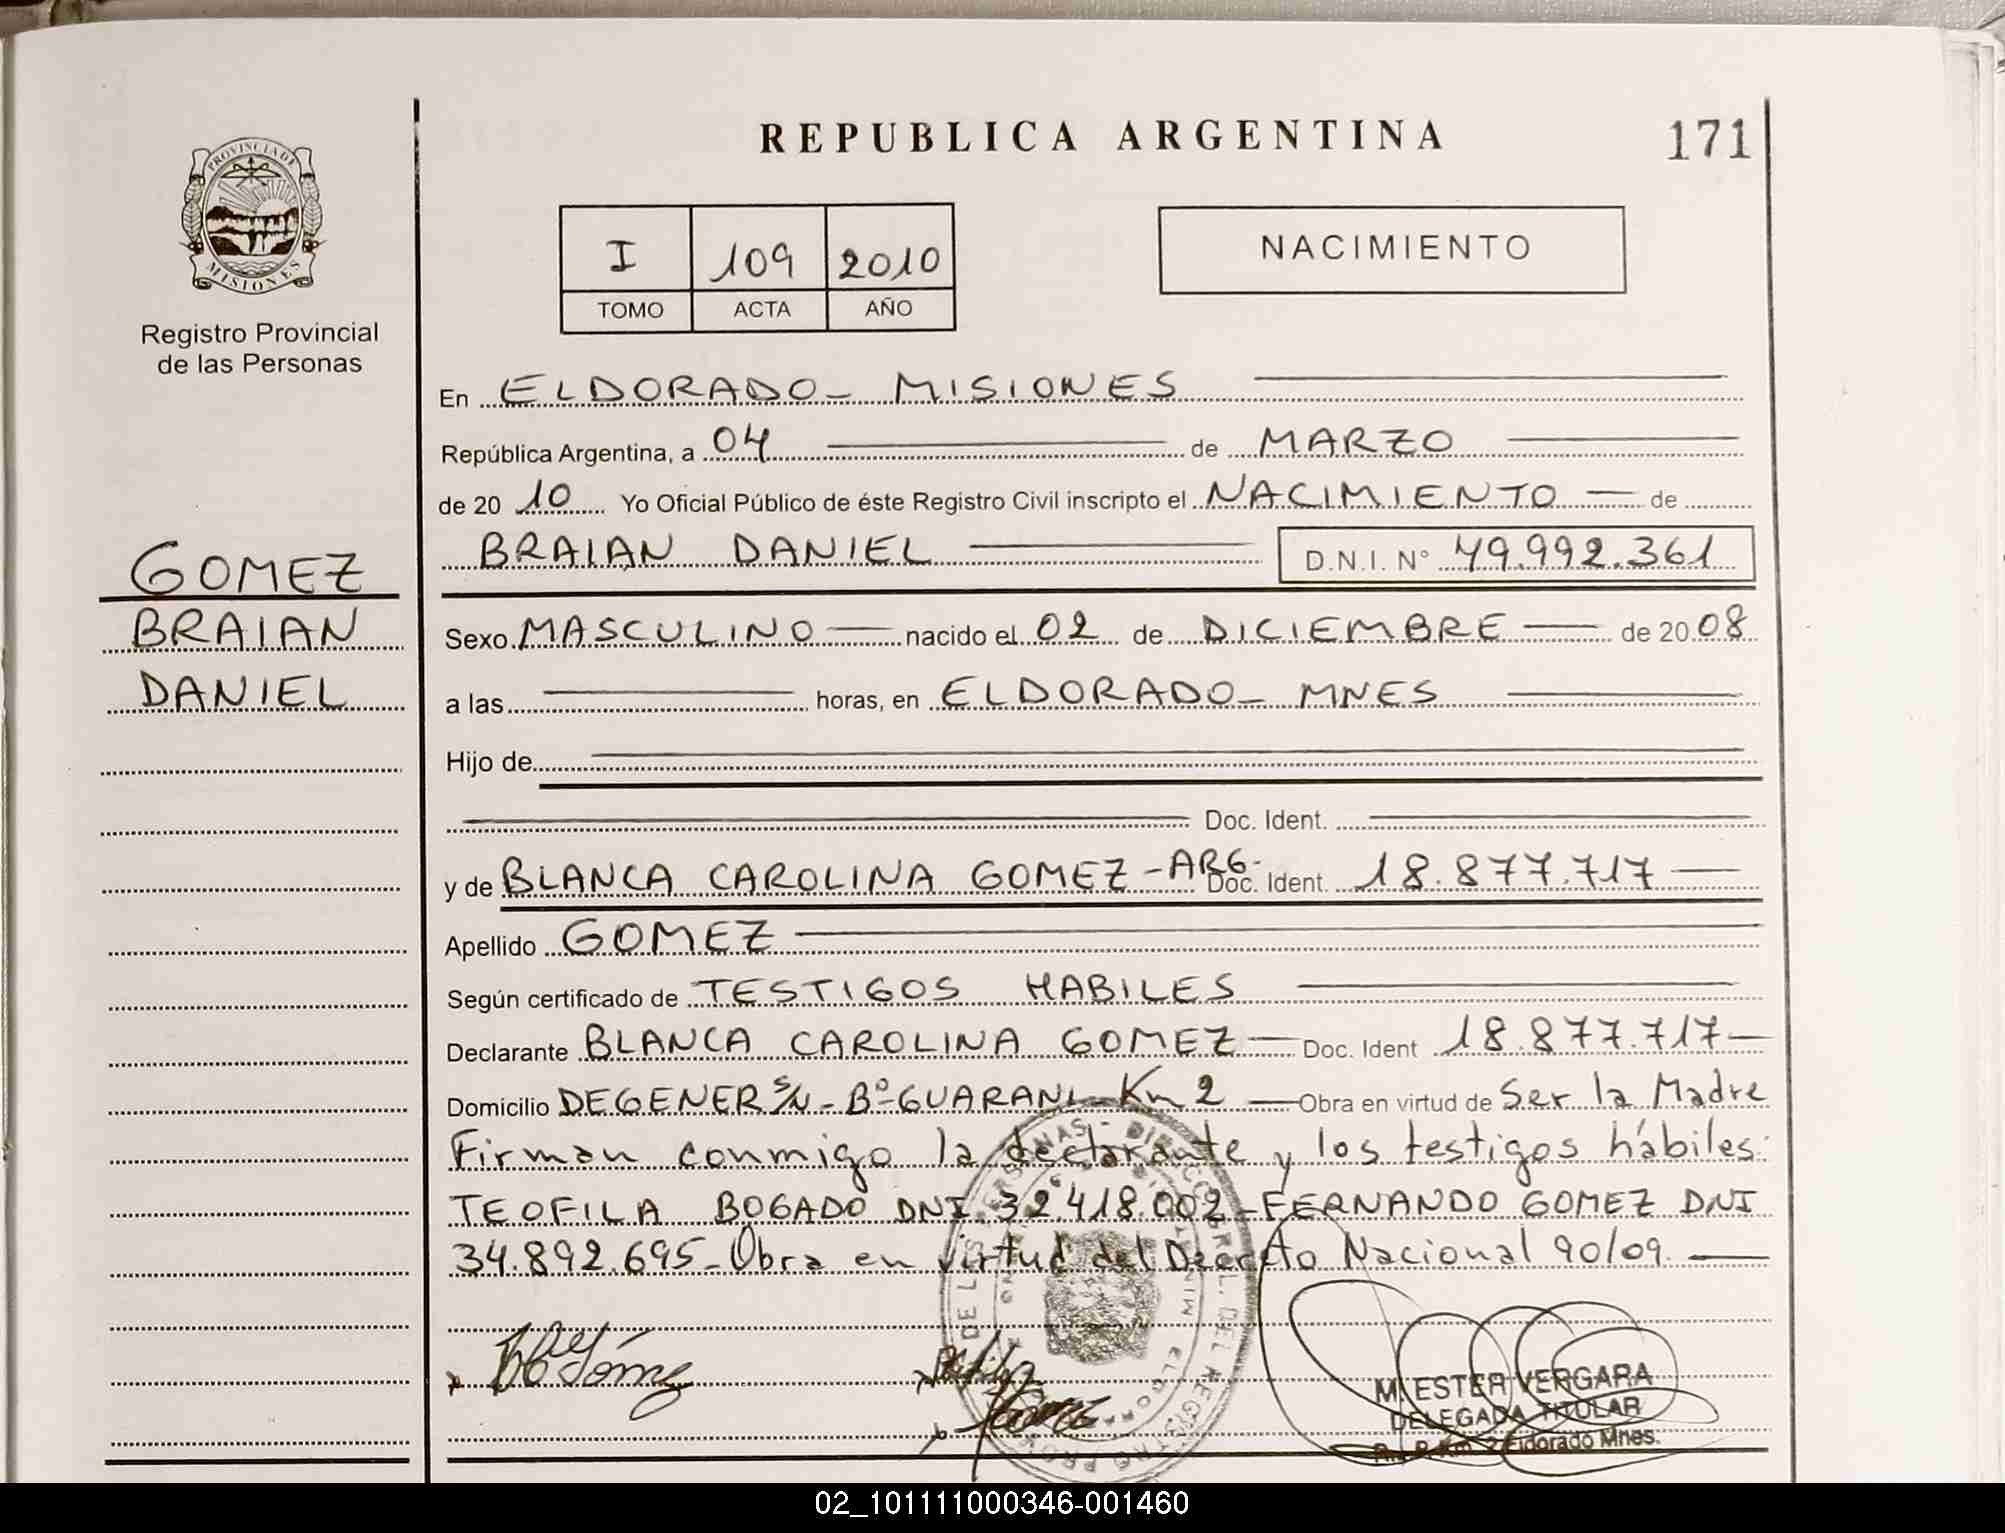 REPUBLICA ARGENTINA
171
PROVINCIA DE
MISIONES
Registro Provincial
de las Personas
I 109 2010
TOMO ACTA AÑO
NACIMIENTO
En ELDORADO_ MISIONES
República Argentina, a 04 de MARZO
de 20 10 Yo Oficial Público de éste Registro Civil inscripto el NACIMIENTO — de
BRAIAN DANIEL D.N.I. N° 49.992.361
GOMEZ
BRAIAN
DANIEL
Sexo MASCULINO — nacido el 02 de DICIEMBRE — de 20 08
a las horas, en ELDORADO_ MNES
Hijo de
Doc. Ident.
y de BLANCA CAROLINA GOMEZ - ARG- Doc. Ident. 18.877.717 —
Apellido GOMEZ
Según certificado de TESTIGOS HABILES
Declarante BLANCA CAROLINA GOMEZ — Doc. Ident 18.877.717 —
Domicilio DEGENER S/N - Bº GUARANI - Km 2 — Obra en virtud de Ser la Madre
Firman conmigo la declarante y los testigos hábiles:
TEOFILA BOGADO DNI 32.418.002 - FERNANDO GOMEZ DNI
34.892.695 - Obra en virtud del Decreto Nacional 90/09. —
M. ESTER VERGARA
DELEGADA TITULAR
Eldorado Mnes.
02_101111000346-001460